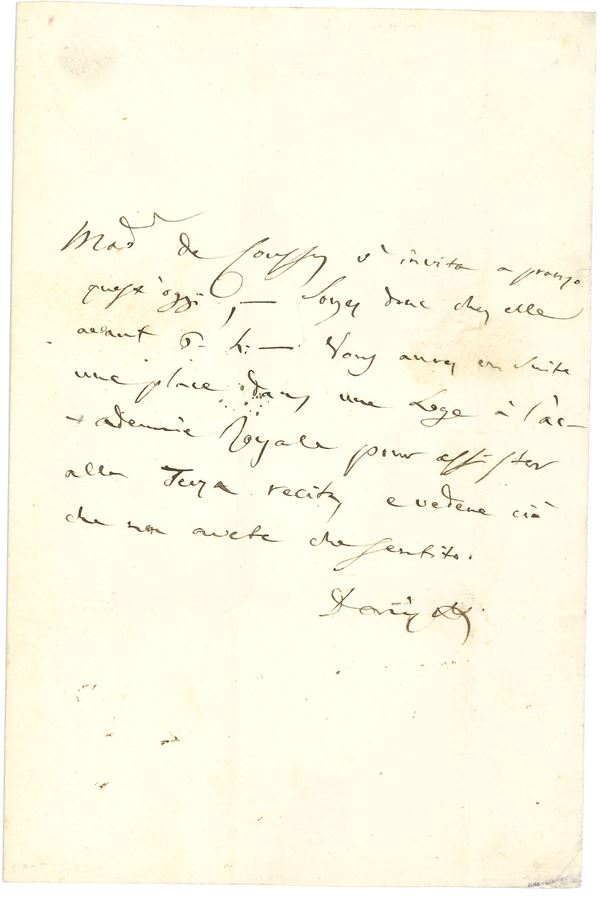 Mad.r de Coussy v'invita a pranzo
quest'oggi, — Soyez donc chez elle
avant 6. h. — Vous aurez ensuite
une place dans une Loge à l'ac-
-ademie Royale pour assister
alla Terza recita, e vedere ciò
che non avete che sentito.
Donizetti